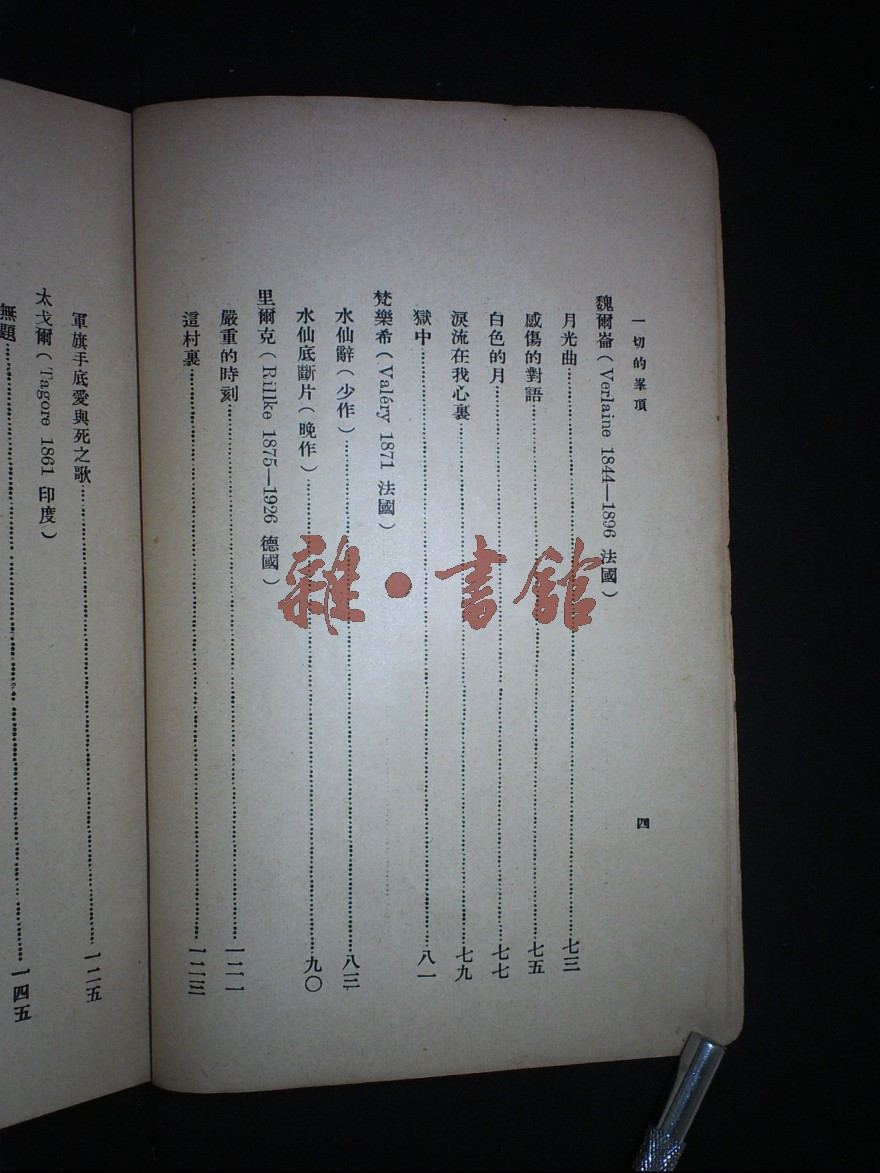 一切的峯頂
四
魏爾崙(Verlaine 1844—1896 法國)
月光曲……七三
感傷的對語……七五
白色的月……七七
淚流在我心裏……七九
獄中……八一
梵樂希(Valéry 1871 法國)
水仙辭(少作)……八三
水仙底斷片(晚作)……九〇
里爾克(Rillke 1875—1926 德國)
嚴重的時刻……一二一
這村裏……一二三
軍旗手底愛與死之歌……一二五
太戈爾(Tagore 1861 印度)
無題……一四五
雜·書館